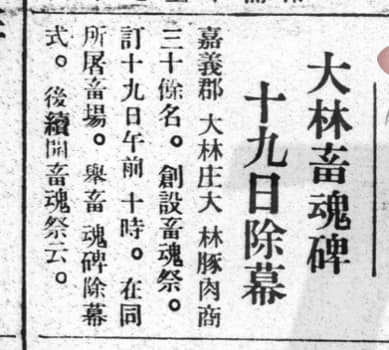 大林畜魂碑
十九日除幕
嘉義郡 大林庄大 林豚肉商
三十餘名。創設畜魂祭。
訂十九日午前 十時。在同
所屠畜場。舉畜 魂碑除幕
式。後續開畜魂祭云。